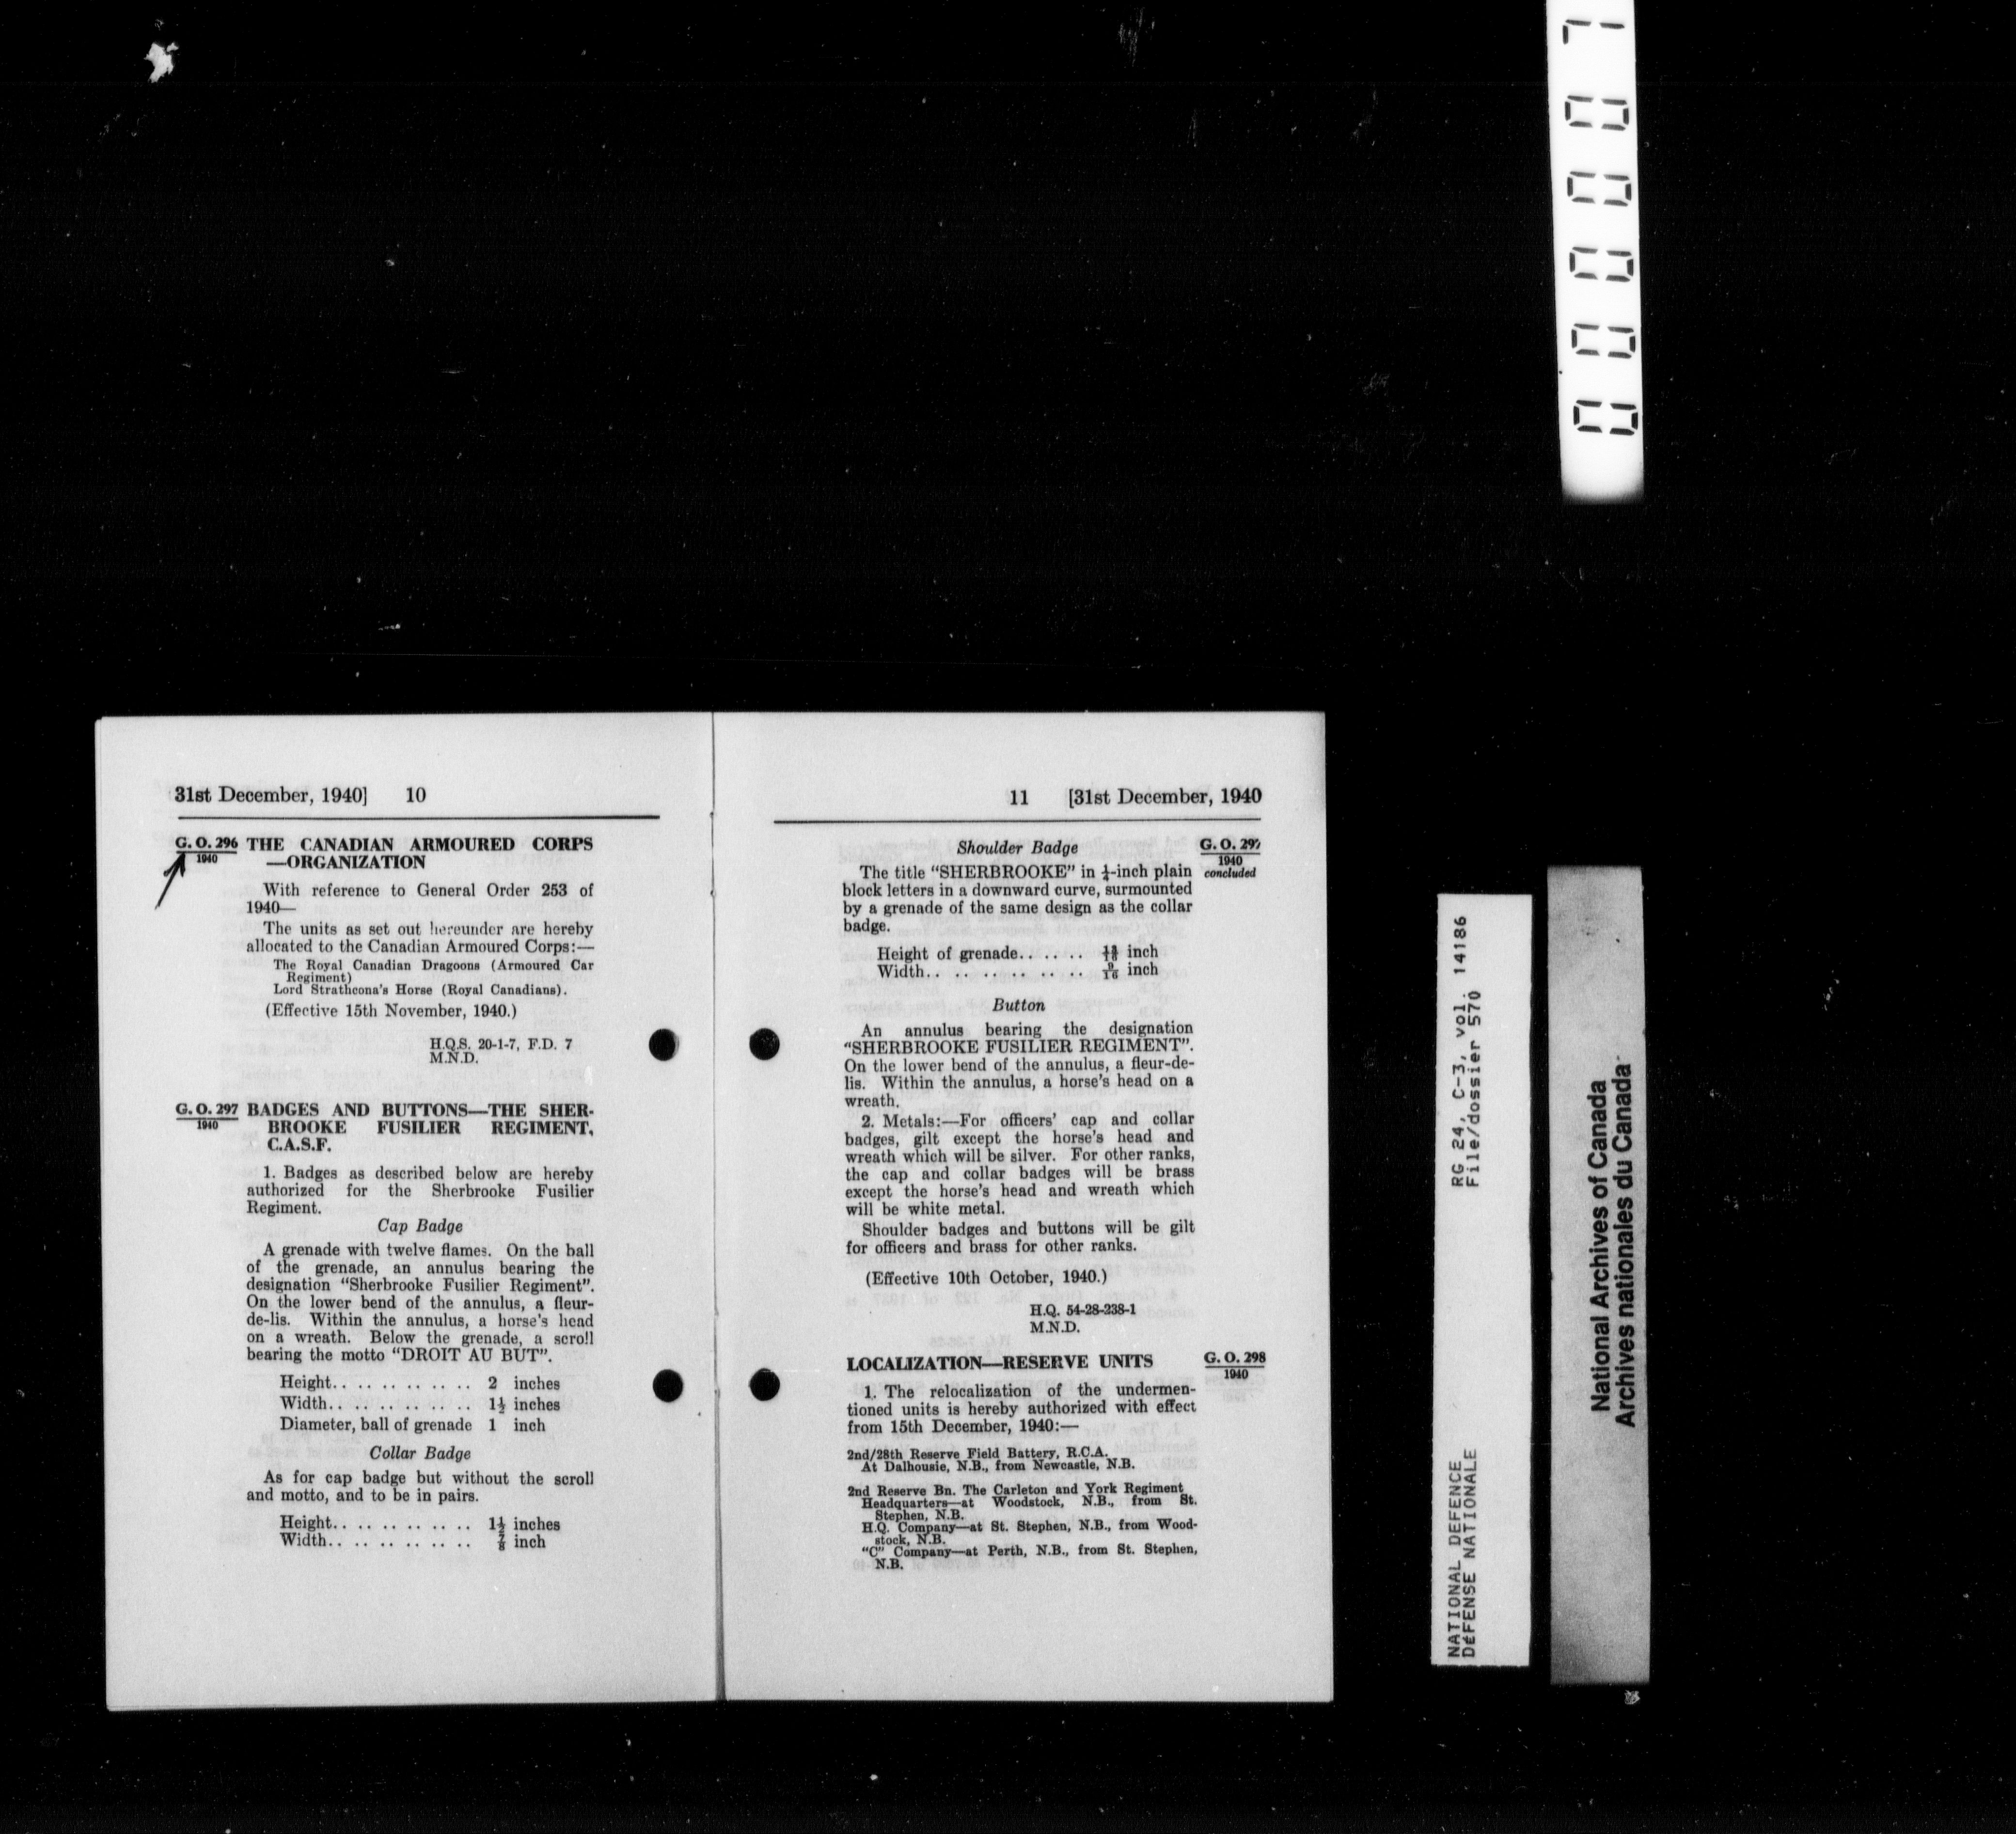 31st December, 1940] 10
G. O. 296
1940
THE CANADIAN ARMOURED CORPS
—ORGANIZATION
With reference to General Order 253 of
1940—
The units as set out hereunder are hereby
allocated to the Canadian Armoured Corps:—
The Royal Canadian Dragoons (Armoured Car
Regiment)
Lord Strathcona's Horse (Royal Canadians).
(Effective 15th November, 1940.)
H.Q.S. 20-1-7, F.D. 7
M.N.D.
G. O. 297
1940
BADGES AND BUTTONS—THE SHER-
BROOKE FUSILIER REGIMENT,
C.A.S.F.
1. Badges as described below are hereby
authorized for the Sherbrooke Fusilier
Regiment.
Cap Badge
A grenade with twelve flames. On the ball
of the grenade, an annulus bearing the
designation "Sherbrooke Fusilier Regiment".
On the lower bend of the annulus, a fleur-
de-lis. Within the annulus, a horse's head
on a wreath. Below the grenade, a scroll
bearing the motto "DROIT AU BUT".
Height.. .. .. .. .. .. 2 inches
Width.. .. .. .. .. .. 1½ inches
Diameter, ball of grenade 1 inch
Collar Badge
As for cap badge but without the scroll
and motto, and to be in pairs.
Height.. .. .. .. .. .. 1½ inches
Width.. .. .. .. .. .. ⅞ inch
11 [31st December, 1940
G. O. 297
1940
concluded
Shoulder Badge
The title "SHERBROOKE" in ¼-inch plain
block letters in a downward curve, surmounted
by a grenade of the same design as the collar
badge.
Height of grenade.. .. .. inch
Width.. .. .. .. .. .. 9/16 inch
Button
An annulus bearing the designation
"SHERBROOKE FUSILIER REGIMENT".
On the lower bend of the annulus, a fleur-de-
lis. Within the annulus, a horse's head on a
wreath.
2. Metals:—For officers' cap and collar
badges, gilt except the horse's head and
wreath which will be silver. For other ranks,
the cap and collar badges will be brass
except the horse's head and wreath which
will be white metal.
Shoulder badges and buttons will be gilt
for officers and brass for other ranks.
(Effective 10th October, 1940.)
H.Q. 54-28-238-1
M.N.D.
LOCALIZATION—RESERVE UNITS
G. O. 298
1940
1. The relocalization of the undermen-
tioned units is hereby authorized with effect
from 15th December, 1940:—
2nd/28th Reserve Field Battery, R.C.A.
At Dalhousie, N.B., from Newcastle, N.B.
2nd Reserve Bn. The Carleton and York Regiment
Headquarters—at Woodstock, N.B., from St.
Stephen, N.B.
H.Q. Company—at St. Stephen, N.B., from Wood-
stock, N.B.
"C" Company—at Perth, N.B., from St. Stephen,
N.B.
NATIONAL DEFENCE RG 24, C-3, vol. 14186
DéFENSE NATIONALE File/dossier 570
National Archives of Canada
Archives nationales du Canada
000007